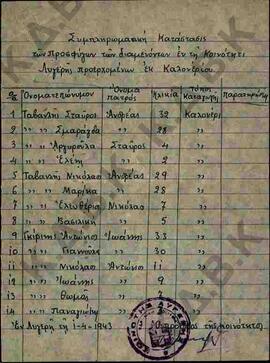 Συμπληρωματική Κατάστασις
τῶν Προσφύγων τῶν διαμενόντων ἐν τῇ Κοινότητι
Λυγερῆς προερχομένων ἐκ Καλονερίου
α/α Ὀνοματεπώνυμον Ὄνομα πατρός Ἡλικία Τόπος Καταγωγῆς Παρατηρήσεις
1 Ταβανλῆς Σταῦρος Ἀνδρέας 32 Καλονέρι
2 〃 〃 Σμαράγδα 〃 28 〃
3 〃 〃 Ἀργυρούλα Σταῦρος 4 〃
4 〃 〃 Ἑλένη 〃 2 〃
5 Ταβανλῆς Νικόλαος Ἀνδρέας 29 〃
6 〃 〃 Μαρίκα 〃 28 〃
7 〃 〃 Ἐλευθερία Νικόλαος 7 〃
8 〃 〃 Βασιλική 〃 5 〃
9 Ἀντώνιος Ἰωάννης 33 〃
10 〃 〃 30 〃
11 〃 〃 Νικόλαος Ἀντώνιος 11 〃
12 〃 〃 Ἰωάννης 〃 9 〃
13 〃 〃 Θωμᾶς 〃
14 〃 〃 Παναγιώτης 〃
Ἐν Λυγερῇ τῇ 1-4-1943 Ὁ πρόεδρος τῆς κοινότητος